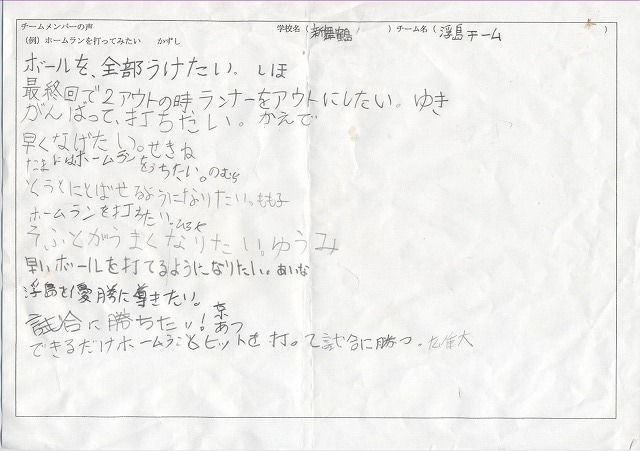 チームメンバーの声 学校名（新舞鶴）チーム名（浮島チーム）
（例）ホームランを打ってみたい　かずし
ボールを、全部うけたい。しほ
最終回で2アウトの時ランナーをアウトにしたい。ゆき
がんばって、打ちたい。かえで
早くなげたい。せきね
たまにはホームランをうちたい。のむら
とおくにとばせるようになりたい。もも子
ホームランを打ちたい。ひろや
そふとがうまくなりたい。ゆうみ
早いボールを打てるようになりたい。あいな
浮島を優勝に導きたい。
試合に勝ちたい！あつ
できるだけホームランとヒットを打って試合に勝つ。雄大